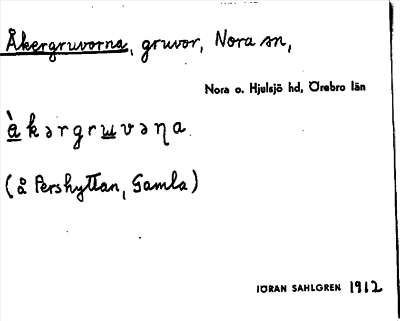 Åkergruvorna, gruvor, Nora sn,
Nora o. Hjulsjö hd, Örebro län
å̀kərgruvəηa
(å Pershyttan, Gamla)
JÖRAN SAHLGREN 1912